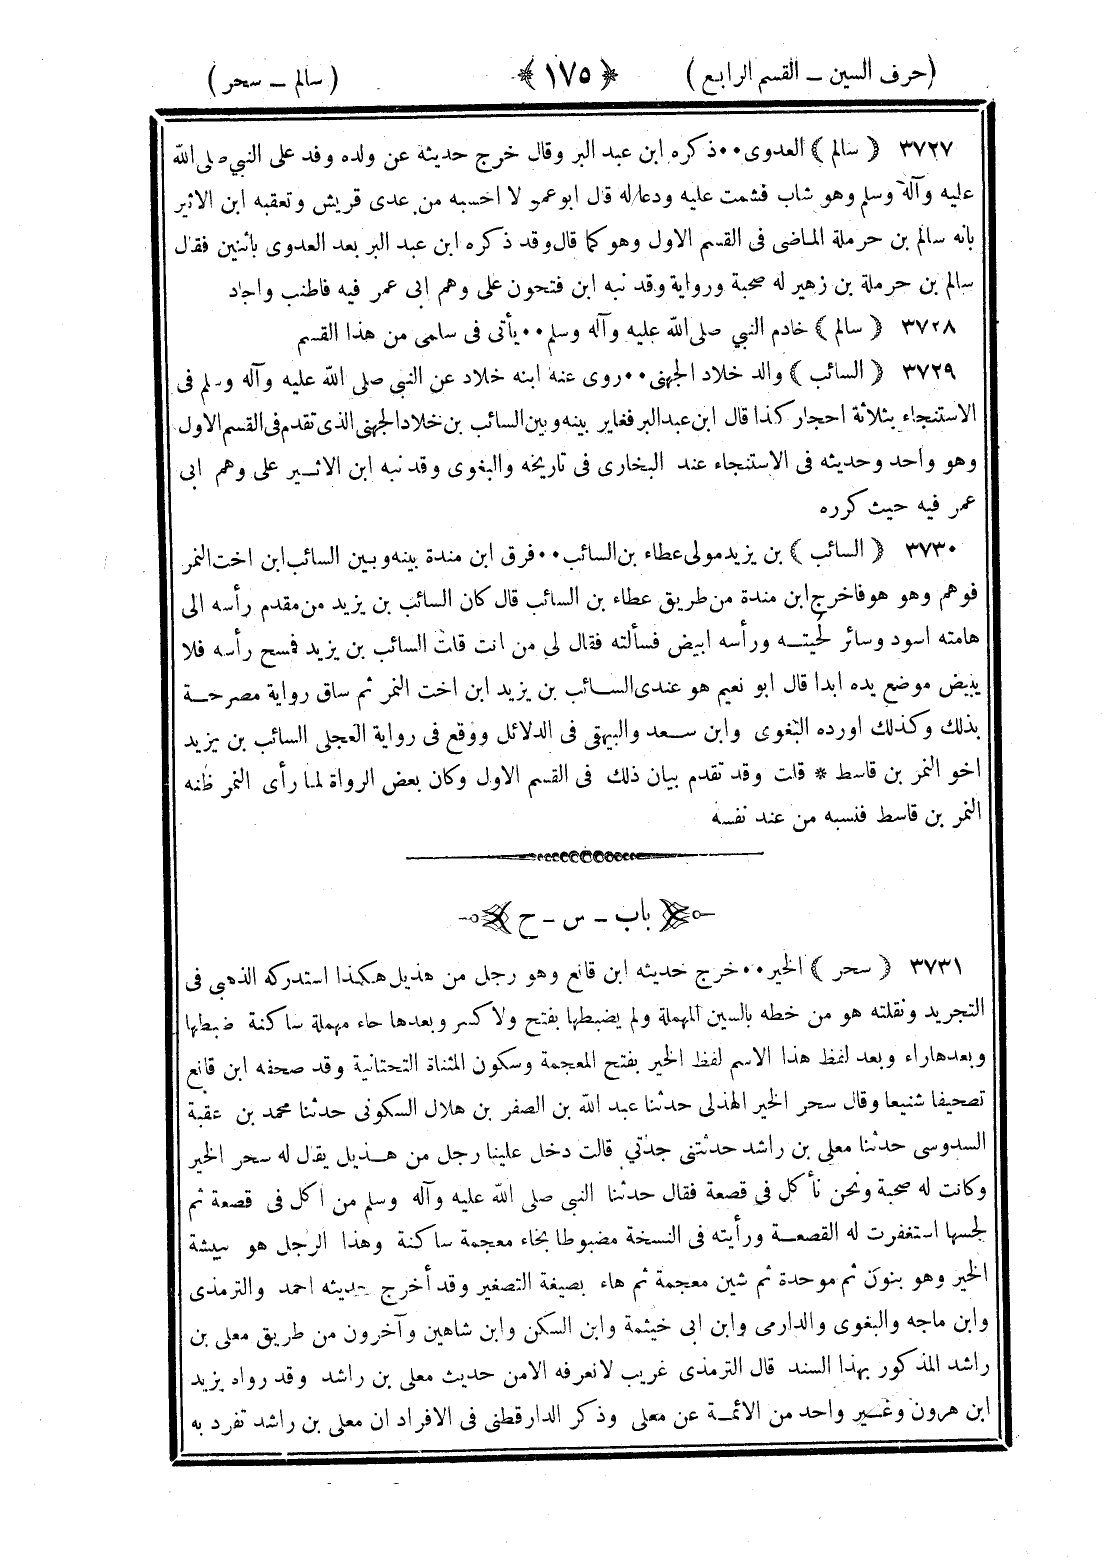 (حرف السين – القسم الرابع) ﴿ ١٧٥ ﴾ (سالم – سحر)
٣٧٢٧ ﴿ سالم ﴾ العدوى٠٠ذكره ابن عبد البر وقال خرج حديثه عن ولده وفد على النبي صلى الله
عليه وآله وسلم وهو شاب فشمت عليه ودعا له قال ابوعمر لا احسبه من عدى قريش وتعقبه ابن الاثير
بانه سالم بن حرملة الماضى فى القسم الاول وهو كما قال وقد ذكره ابن عبد البر بعد العدوى باثنين فقال
سالم بن حرملة بن زهير له صحبة ورواية وقد نبه ابن فتحون على وهم ابى عمر فيه فاطنب واجاد
٣٧٢٨ ﴿ سالم ﴾ خادم النبي صلى الله عليه وآله وسلم٠٠يأتى فى سلمى من هذا القسم
٣٧٢٩ ﴿ السائب ﴾ والد خلاد الجهنى٠٠روى عنه ابنه خلاد عن النبي صلى الله عليه وآله وسلم فى
الاستنجاء بثلاثة احجار كذا قال ابن عبد البر فغاير بينه وبين السائب بن خلاد الجهنى الذى تقدم فى القسم الاول
وهو واحد وحديثه فى الاستنجاء عند البخارى فى تاريخه والبغوى وقد نبه ابن الاثير على وهم ابى
عمر فيه حيث كرره
٣٧٣٠ ﴿ السائب ﴾ بن يزيد مولى عطاء بن السائب٠٠فرق ابن مندة بينه وبين السائب ابن اخت النمر
فوهم وهو هو فاخرج ابن مندة من طريق عطاء بن السائب قال كان السائب بن يزيد من مقدم رأسه الى
هامته اسود وسائر لحيته ورأسه ابيض فسألته فقال لي من انت قلت السائب بن يزيد فمسح رأسه فلا
يبيض موضع يده ابدا قال ابو نعيم هو عندى السائب بن يزيد ابن اخت النمر ثم ساق رواية مصرحة
بذلك وكذلك اورده البغوى وابن سعد والبيهقى فى الدلائل ووقع فى رواية العجلى السائب بن يزيد
اخو النمر بن قاسط * قلت وقد تقدم بيان ذلك فى القسم الاول وكان بعض الرواة لما رأى النمر ظنه
النمر بن قاسط فنسبه من عند نفسه
باب – س – ح
٣٧٣١ ﴿ سحر ﴾ الخير٠٠خرج حديثه ابن قانع وهو رجل من هذيل هكذا استدركه الذهبى فى
التجريد ونقلته هو من خطه بالسين المهملة ولم يضبطها بفتح ولا كسر وبعدها حاء مهملة ساكنة ضبطها
وبعدها راء وبعد لفظ هذا الاسم لفظ الخير بفتح المعجمة وسكون المثناة التحتانية وقد صحفه ابن قانع
تصحيفا شنيعا وقال سحر الخير الهذلى حدثنا عبد الله بن الصفر بن هلال السكونى حدثنا محمد بن عقبة
السدوسى حدثنا معلى بن راشد حدثتنى جدتي قالت دخل علينا رجل من هذيل يقال له سحر الخير
وكانت له صحبة ونحن نأكل فى قصعة فقال حدثنا النبي صلى الله عليه وآله وسلم من اكل فى قصعة ثم
لحسها استغفرت له القصعة ورأيته فى النسخة مضبوطا بخاء معجمة ساكنة وهذا الرجل هو نبيشة
الخير وهو بنون ثم موحدة ثم شين معجمة ثم هاء بصيغة التصغير وقد أخرج حديثه احمد والترمذى
وابن ماجه والبغوى والدارمى وابن ابى خيثمة وابن السكن وابن شاهين وآخرون من طريق معلى بن
راشد المذكور بهذا السند قال الترمذى غريب لانعرفه الامن حديث معلى بن راشد وقد رواه يزيد
ابن هرون وغير واحد من الائمة عن معلى وذكر الدارقطنى فى الافراد ان معلى بن راشد تفرد به